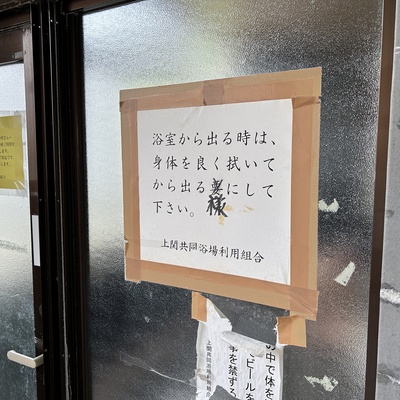 浴室から出る時は、
身体を良く拭いて
から出る様にして
下さい。
上関共同浴場利用組合
の中で体を
ビールを
事を禁ずる
上関共同浴場利用組